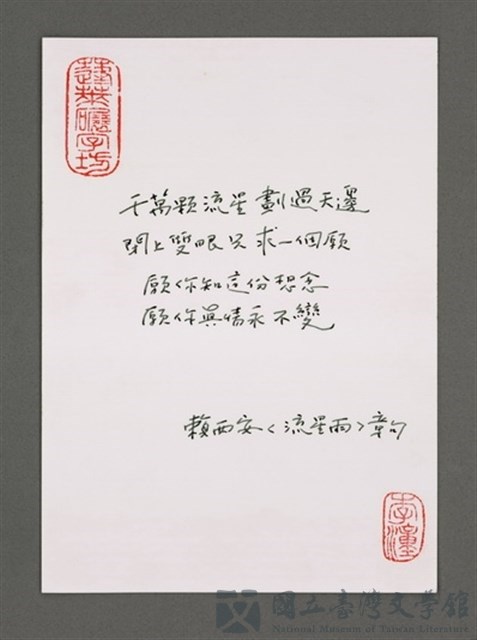 蓬萊碾字坊
千萬顆流星劃過天邊
閉上雙眼只求一個願
願你知這份想念
願你真情永不變
賴西安〈流星雨〉章句
李潼
國立臺灣文學館
National Museum of Taiwan Literature